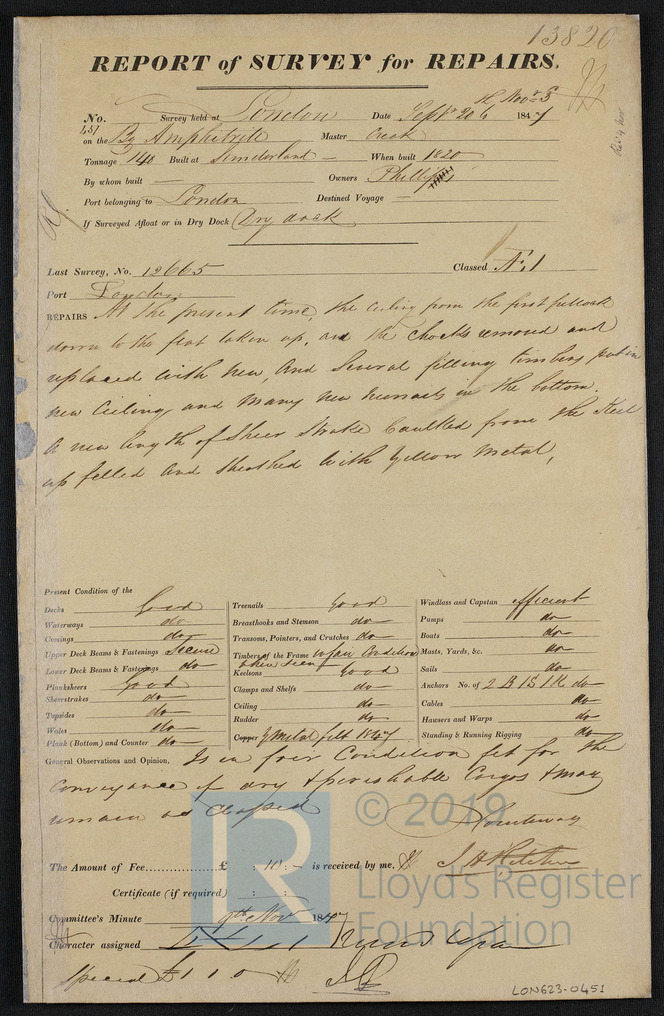 13820
REPORT of SURVEY for REPAIRS.
No. Survey held at London Date Sept 20 to Novr 3 1847
on the Bg Amphitrite Master Crook
Tonnage 148 Built at Sunderland When built 1820
By whom built Owners Phillips
Port belonging to London Destined Voyage
If Surveyed Afloat or in Dry Dock Dry dock
Last Survey, No. 12665 Classed Æ 1
Port London
REPAIRS At the present time, the ceiling from the first futtock
down to the flat taken up, and the chocks removed and
replaced with new, And Several filling timbers put in
new Ceiling and many new treenails in the bottom.
A new length of Sheer Strake Caulked from the Keel
up felted and Sheathed with Yellow Metal,
Present Condition of the
Decks Good
Waterways do
Comings do
Upper Deck Beams & Fastenings Secure
Lower Deck Beams & Fastenings do
Planksheers Good
Sheerstrakes do
Topsides do
Wales do
Plank (Bottom) and Counter do
Treenails Good
Breasthooks and Stemson do
Transoms, Pointers, and Crutches do
Timbers of the Frame in fair Condition
when seen
Keelsons Good
Clamps and Shelfs do
Ceiling do
Rudder do
Copper Y Metal felt 1847
Windlass and Capstan efficient
Pumps do
Boats do
Masts, Yards, &c. do
Sails do
Anchors No. of 2 B 1 S 1 K do
Cables do
Hawsers and Warps do
Standing & Running Rigging do
General Observations and Opinion, Is in fair Condition fit for the
Conveyance of dry & perishable Cargos & may
remain as Classed
© 2019
Lloyd's Register
Foundation
The Amount of Fee............... £ 10 : - is received by me.
Certificate (if required) : :
Committee's Minute 9th Novr 1847
Character assigned
Special £1 1 0
LON623-0451